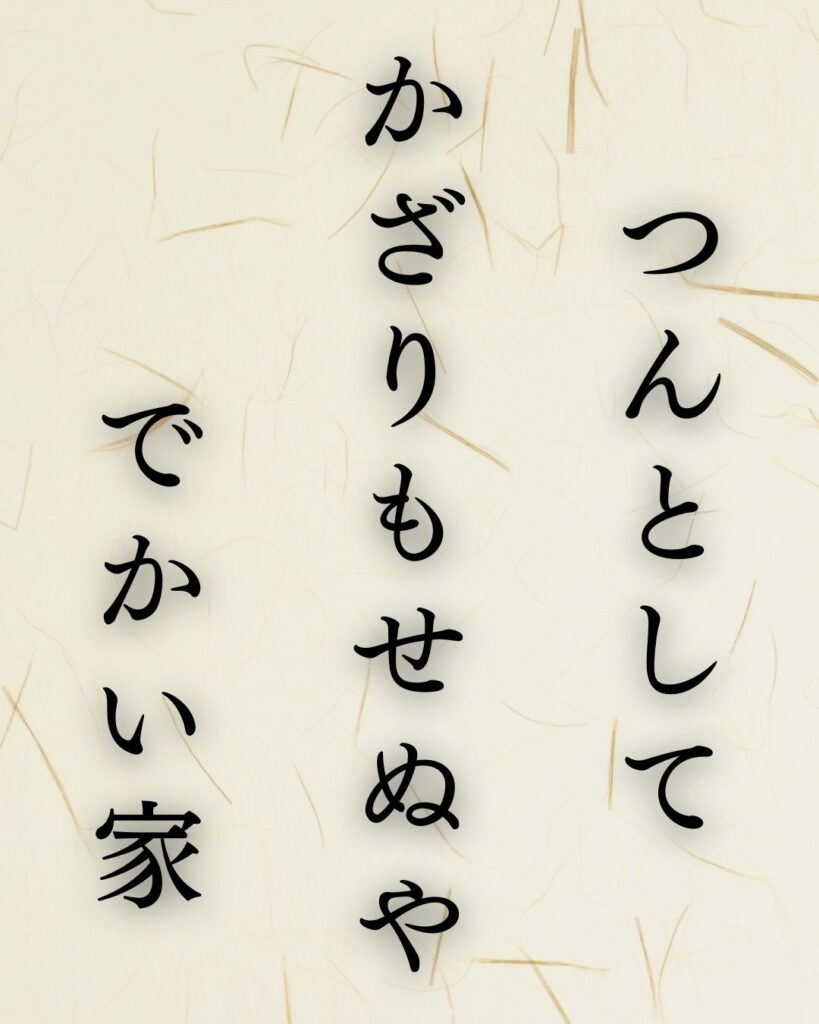 つんとして
かざりもせぬや
でかい家